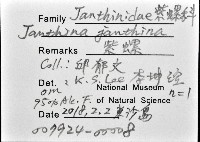 Family Janthinidae 紫螺科
Janthina janthina
Remarks 紫螺
Coll.: 邱郁文
Det.: K.S. Lee 李坤瑄
om National Museum n=1
95% Alc. F. of Natural Science
Date 2018.2.2 東沙島
007924-00008